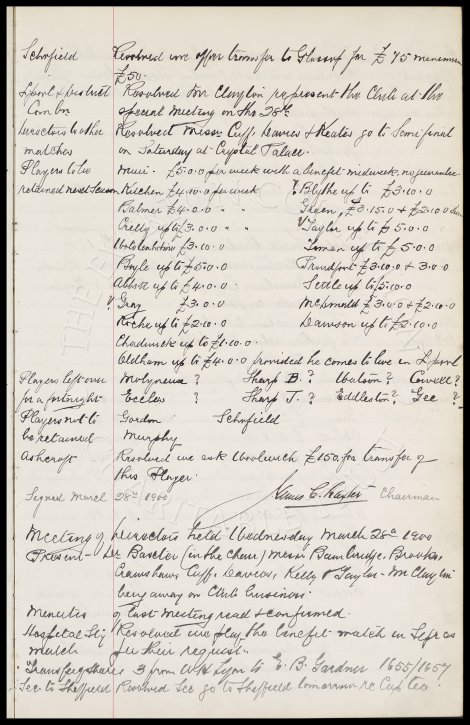 Schofield Resolved we offer transfer to Glossop for £75 minimum
£50.
L'pool & District Resolved Mr Clayton represent the Club at the
Com tee special meeting on the 28th
Directors to other Resolved Messrs Cuff, Davies & Keates go to Semi final
matches on Saturday at Crystal Palace.
Players to be Muir. £5.0.0 per week with a benefit midweek, no guarantee.
retained next season Kitchen £4.10.0 per week ? Blythe up to £3.10.0
Balmer £4.0.0 " " Green, £3.15.0 + £2.10.0
Crelly up to £3.0.0 " ? Taylor up to £5.0.0
Wolstenholme £3.10.0 Toman up to £5.0.0
Boyle up to £5.0.0 Proudfoot £3.10.0 + 3.0.0
Abbott up to £4.0.0 Settle up to £5.10.0
? Gray £3.0.0 McDonald £3.0.0 + £2.10.0
Roche up to £2.10.0 Dawson up to £2.10.0
Chadwick up to £1.10.0
Oldham up to £4.0.0 provided he comes to live in L'pool
Players left over Molyneux ? Sharp B. ? Watson ? Cowell ?
for a fortnight Eccles ? Sharp J. ? Eddleston ? Gee ?
Players not to Gordon Schofield
be retained Murphy
Ashcroft Resolved we ask Woolwich £150 for transfer of
this Player.
Signed March 28th 1900 James C. Baxter Chairman
Meeting of Directors held Wednesday March 28th 1900
Present - Dr Baxter (in the chair) Messrs Bainbridge, Brooks,
Crawshaw, Cuff, Davies, Kelly & Taylor - Mr Clayton
being away on Club business.
Minutes of last meeting read & confirmed
Hospital Resolved we play the benefit match in Sept as
match per their request.
Transfer Shares 3 from W. H. Lyon to E. B. Gardner 1655/1657
Sec to Sheffield Resolved Sec go to Sheffield tomorrow re Cup tie.